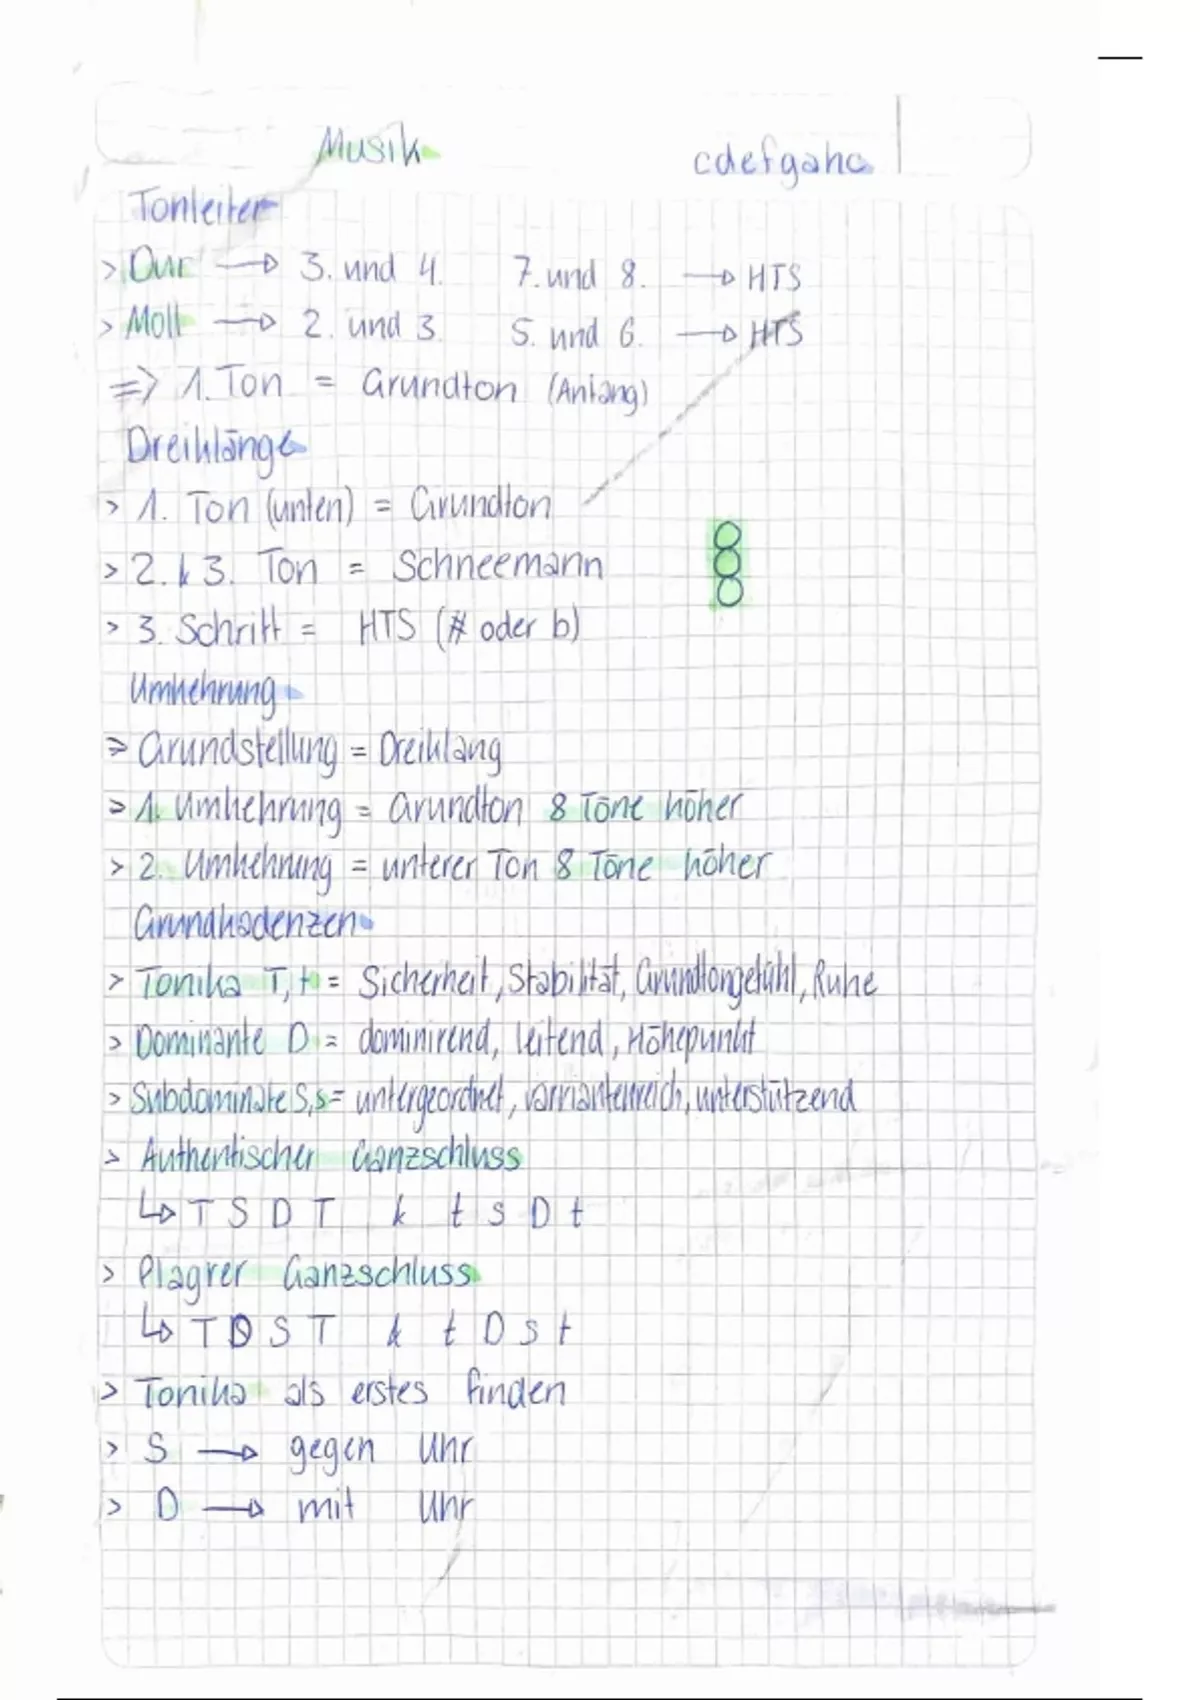 Musik
cdefgahc
Tonleiter
> Dur → 3. und 4. 7. und 8. → HTS
> Moll → 2. und 3. 5. und 6. → HTS
=> 1. Ton = Grundton (Anfang)
Dreiklänge
> 1. Ton (unten) = Grundton
> 2. & 3. Ton = Schneemann
> 3. Schritt = HTS (# oder b)
Umkehrung
> Grundstellung = Dreiklang
> 1. Umkehrung = Grundton 8 Töne höher
> 2. Umkehrung = unterer Ton 8 Töne höher
Grundkadenzen
> Tonika T, t = Sicherheit, Stabilität, Grundtongefühl, Ruhe
> Dominante D = dominirend, leitend, Höhepunkt
> Subdominate S, s = untergeordnet, varriantenreich, unterstützend
> Authentischer Ganzschluss
↳ T S D T & t s D t
> Plagrer Ganzschluss
↳ T D S T & t D s t
> Tonika als erstes finden
> S → gegen Uhr
> D → mit Uhr